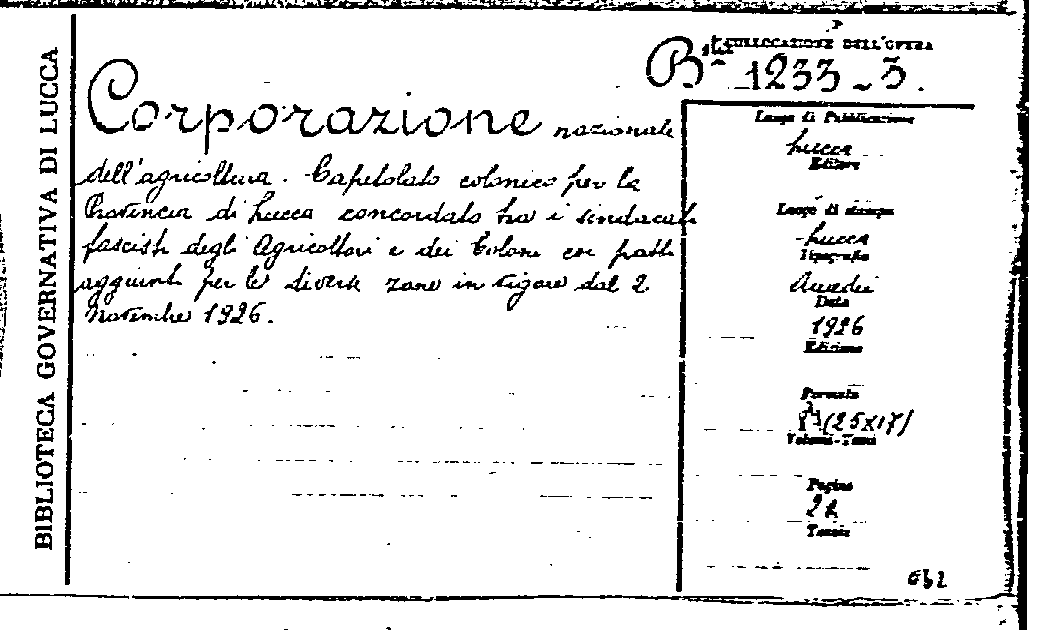 BIBLIOTECA GOVERNATIVA DI LUCCA
COLLOCAZIONE DELL'OPERA
B.ta 1233-3.
Corporazione nazionale
dell'agricoltura. Capitolato colonico per la
Provincia di Lucca concordato tra i sindacati
fascisti degli Agricoltori e dei Coloni con patti
aggiunti per le diverse zone in vigore dal 2
Novembre 1926.
Luogo di Pubblicazione
Lucca
Editore
Luogo di stampa
Lucca
Tipografia
Amedei
Data
1926
Edizione
Formato
(25x17)
Volumi-Tomi
Pagine
Tavole